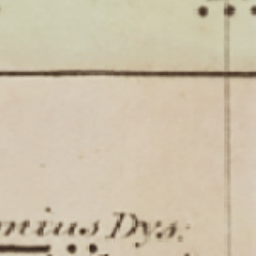 nius Dys: